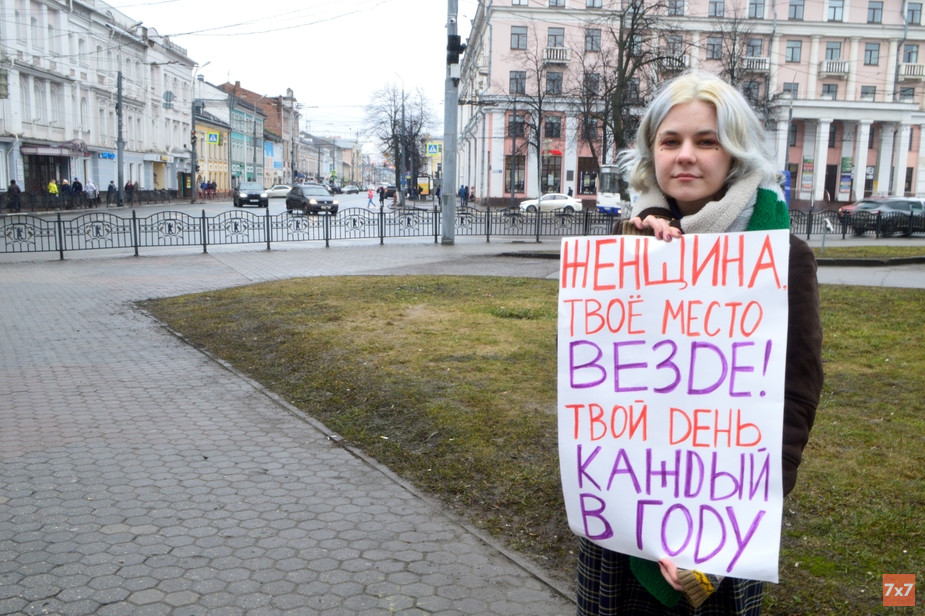 ЖЕНЩИНА,
ТВОЁ МЕСТО
ВЕЗДЕ!
ТВОЙ ДЕНЬ
КАЖДЫЙ
В ГОДУ
7x7